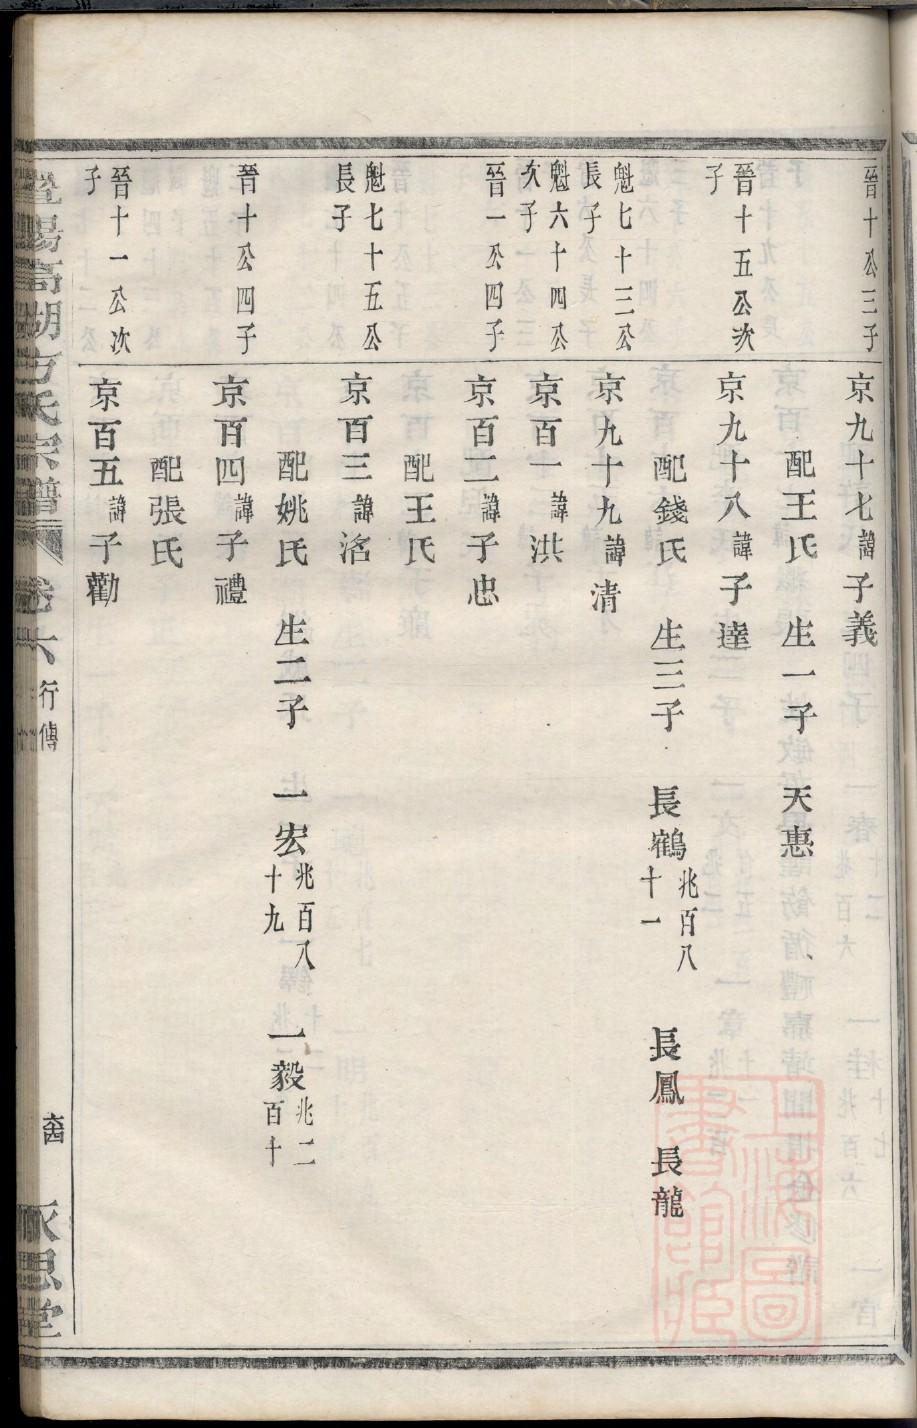 晉十公三子
京九十七諱子義
配王氏 生一子 天惠
晉十五公次子
京九十八諱子達
配錢氏 生三子 長鶴兆百八十一 長鳳 長龍
魁七十三公長子
京九十九諱清
魁六十四公次子
京百一諱洪
晉一公四子
京百二諱子忠
配王氏
魁七十五公長子
京百三諱洺
配姚氏 生二子 一宏兆百八十九 一毅兆二百十
晉十公四子
京百四諱子禮
配張氏
晉十一公次子
京百五諱子勸
暨陽高湖方氏宗譜 卷六 行傳
永思堂